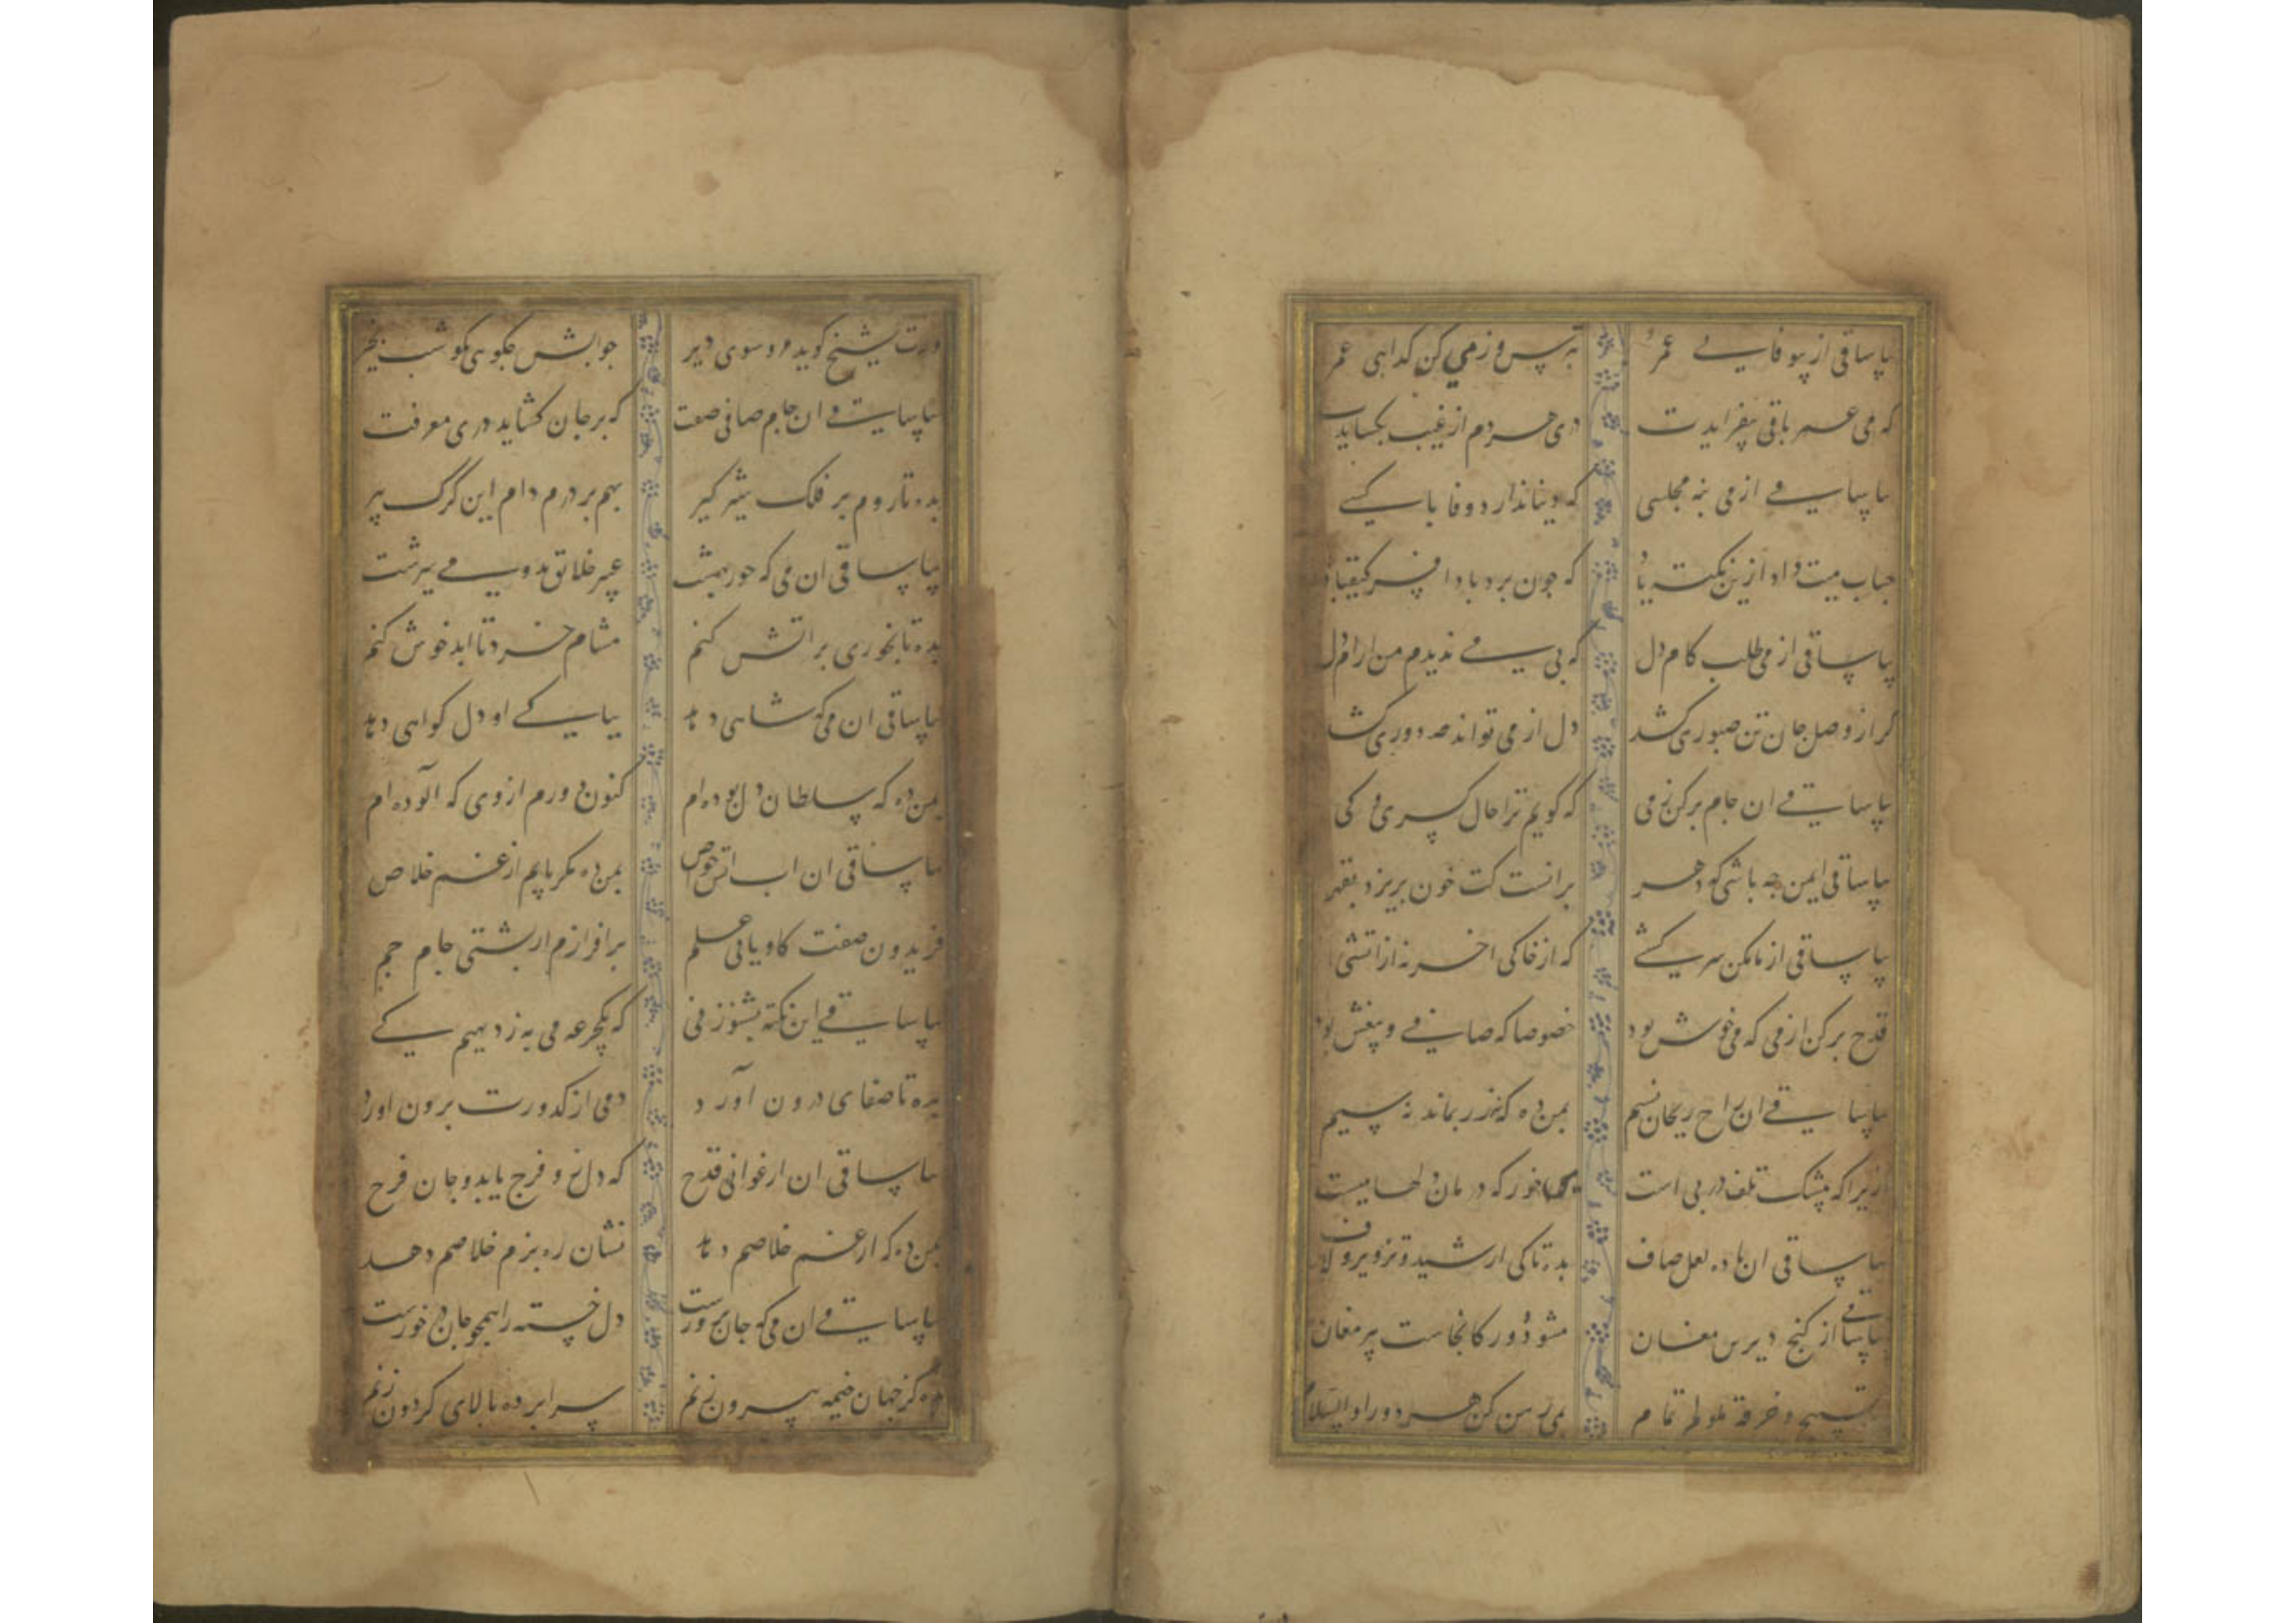 بیا ساقی از بیوفایی عمر بترس و ز می کن گدایی عمر
که می عمر باقی بیفزایدت دری هر دم از غیب بگشاید
بیا ساقی از می بنه مجلسی که دنیا ندارد وفا با کسی
حباب میت داد ازین نکته یاد که چون برد باد افسر کیقباد
بیا ساقی از می طلب کام دل که بی می ندیدم من ارام دل
گر از وصل جان تن صبوری کند دل از می تواند که دوری کند
بیا ساقی ان جام پر کن ز می که گویم ترا حال کسری و کی
بیا ساقی ایمن چه باشی که دهر برانست کت خون بریزد بقهر
بیا ساقی از ما مکن سرکشی که از خاکی اخر نه از اتشی
قدح پر کن از می که می خوش بود خصوصا که صافی و بیغش بود
بیا ساقی ان راح ریحان نسیم بمن ده که نه زر بماند نه سیم
زیرا که بیشک تلف در پی است خور که درمان دلها میست
بیا ساقی ان باده لعل صاف بده تا کی از شید و تزویر و لاف
بیا ساقی از کنج دیر مغان مشو دور کانجاست پیر مغان
تسبیح و خرقه ملولم تمام بمی رهن کن هر دو را والسلام
ورت شیخ گوید مرو سوی دیر جوابش چگویی بگو شب بخیر
بیا ساقی ان جام صافی صفت که بر جان گشاید در معرفت
بده تا روم بر فلک شیر گیر بهم بر درم دام این گرگ پیر
بیا ساقی ان می که حور بهشت عبیر ملایک بدو می سرشت
بده تا بخوری بر اتش کنم مشام خرد تا ابد خوش کنم
بیا ساقی ان می که شاهی دهد بپاکی او دل گواهی دهد
بمن ده که سلطان دل بوده ام کنون دورم از وی که آلوده ام
بیا ساقی ان اب اتش خواص بمن ده مگر یابم از غم خلاص
فریدون صفت کاویانی علم برافرازم ار پشتی جام جم
بیا ساقی این نکته بشنو ز نی که یکجرعه می به ز دیهیم کی
بده تا صفای درون آورد دمی از کدورت برون اورد
بیا ساقی ان ارغوانی قدح که دل زو فرج یابد و جان فرح
بمن ده که از غم خلاصم دهد نشان ره بزم خلاصم دهد
بیا ساقی ان می که جان پرورست دل خسته را همچو جان در خورست
بده کز جهان خیمه بیرون زنم سراپرده بالای گردون زنم